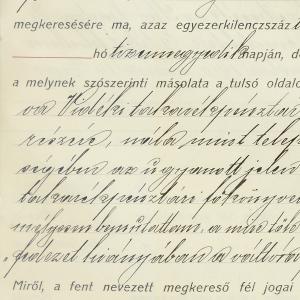 megkeresésére ma, azaz egyezerkilenczszáz
hó tizennegyedik napján, d
a melynek szószerinti másolata a tulsó oldalo
va Vidéki takarékpénztár
részére, nála mint telep
ségében az ugyanott jelen
takarékpénztári főkönyve
mélyesen bemutattam, a min tőle
fedezet hiányában a váltótá
Miről, a fent nevezett megkereső fél jogai